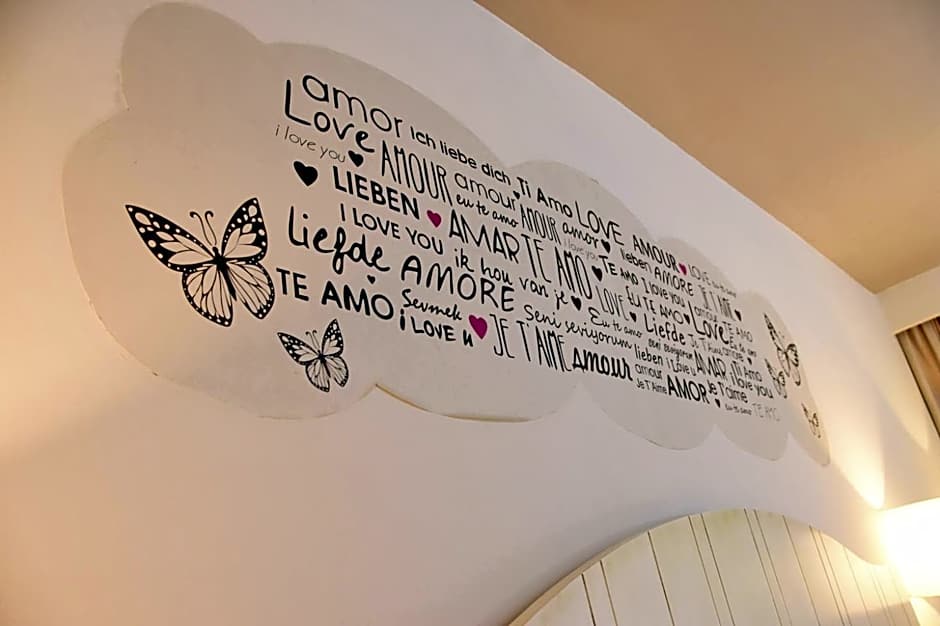 amor ich liebe dich Ti Amo LOVE AMOUR LOVE
Love AMOUR amour AMOUR amor lieben AMORE JE T'AIME
i love you eu te amo i love you TE AMO I love you amour
LIEBEN AMAR TE AMO EU TE AMO Love TE AMO
I LOVE YOU ik hou van je LOVE Liefde Je T'aime amore Eu te amo
Liefde AMORE Seni seviyorum Eu te amo seni seviyorum AMAR Ti Amo
TE AMO Sevmek JE T'AIME lieben i Love u i love you
i LOVE u amour amour Je t'aime
Je T'Aime AMOR eu te amo TE AMO